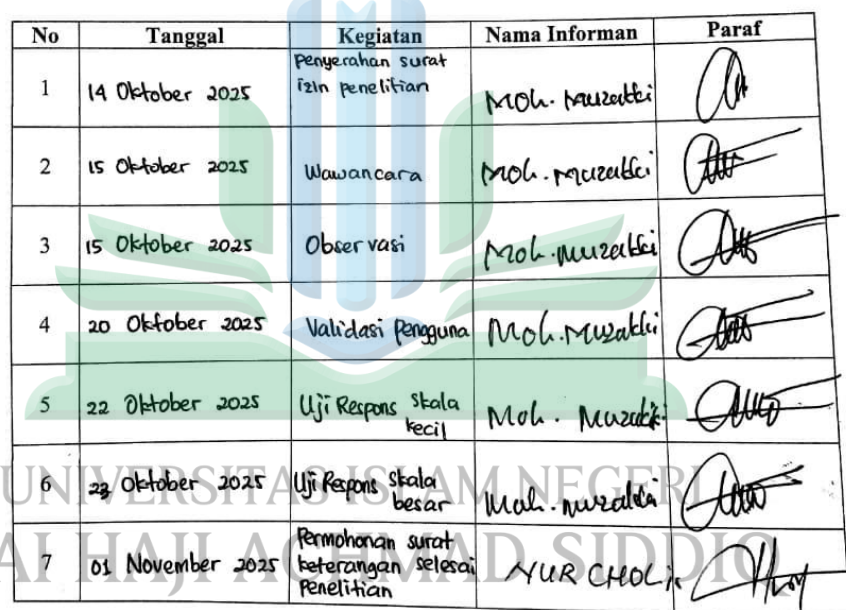 No Tanggal Kegiatan Nama Informan Paraf
1 14 Oktober 2025 Penyerahan surat izin penelitian Moh. Muzakki
2 15 Oktober 2025 Wawancara Moh. Muzakki
3 15 Oktober 2025 Observasi Moh. Muzakki
4 20 Oktober 2025 Validasi Pengguna Moh. Muzakki
5 22 Oktober 2025 Uji Respons skala kecil Moh. Muzakki
6 23 Oktober 2025 Uji Respons skala besar Moh. Muzakki
UNIVERSITAS ISLAM NEGERI
7 01 November 2025 Permohonan surat keterangan selesai Penelitian NUR CHOLIS
AI HAJI ACHMAD SIDDIQ